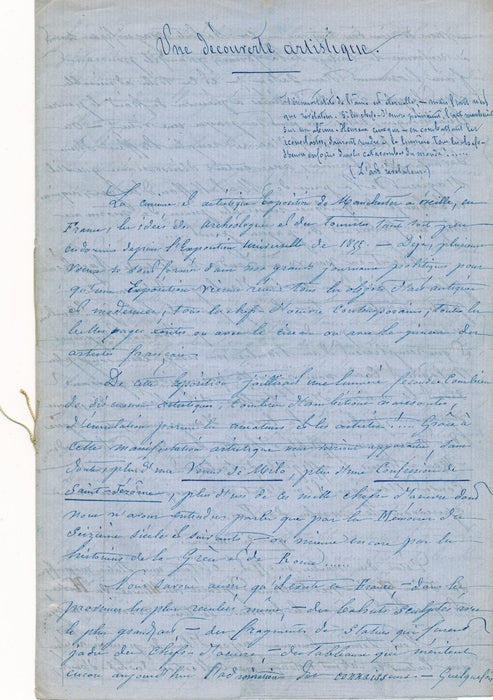 Une découverte artistique.
L'immortalité de l'âme est éternelle, — mais l'art n'est
que révélation. Si les chefs-d'œuvre périssaient, l'art
sur un abîme. Heureux ceux qui en combattant les
iconoclastes, sauront rendre à la lumière tous les chefs-
d'œuvre enfouis dans les catacombes du monde !.....
(L'art révélateur)
La curieuse et artistique Exposition de Manchester a éveillé, en
France, les idées des archéologues et des touristes tant soit peu
endormies depuis l'Exposition universelle de 1855. — Déjà, plusieurs
vœux se sont formés dans nos grands journaux politiques pour
qu'une Exposition vienne réunir tous les objets d'art antiques
et modernes, tous les chefs-d'œuvre contemporains, toutes les
belles pages écrites ou avec le ciseau ou avec le pinceau des
artistes français.
De cette Exposition jaillirait une lumière féconde. Combien
de découvertes artistiques, combien d'ambitions naissantes
d'émulation parmi les amateurs et les artistes !... Grâce à
cette manifestation artistique nous verrions apparaître, sans
doute, plus d'une Vénus de Milo, plus d'une Confession de
Saint-Jérôme, plus d'un de ces mille chefs-d'œuvre dont
nous n'avons entendu parler que par les Mémoires du
Seizième siècle et suivants — ou même encore par les
historiens de la Grèce et de Rome.....
Nous savons aussi qu'il existe en France, — dans les
provinces les plus reculées, même, — des bahuts sculptés avec
le plus grand art — des fragments de statues qui furent
jadis des chefs-d'œuvre, — des tableaux qui méritent
encore aujourd'hui l'admiration des connaisseurs — Quelquefois